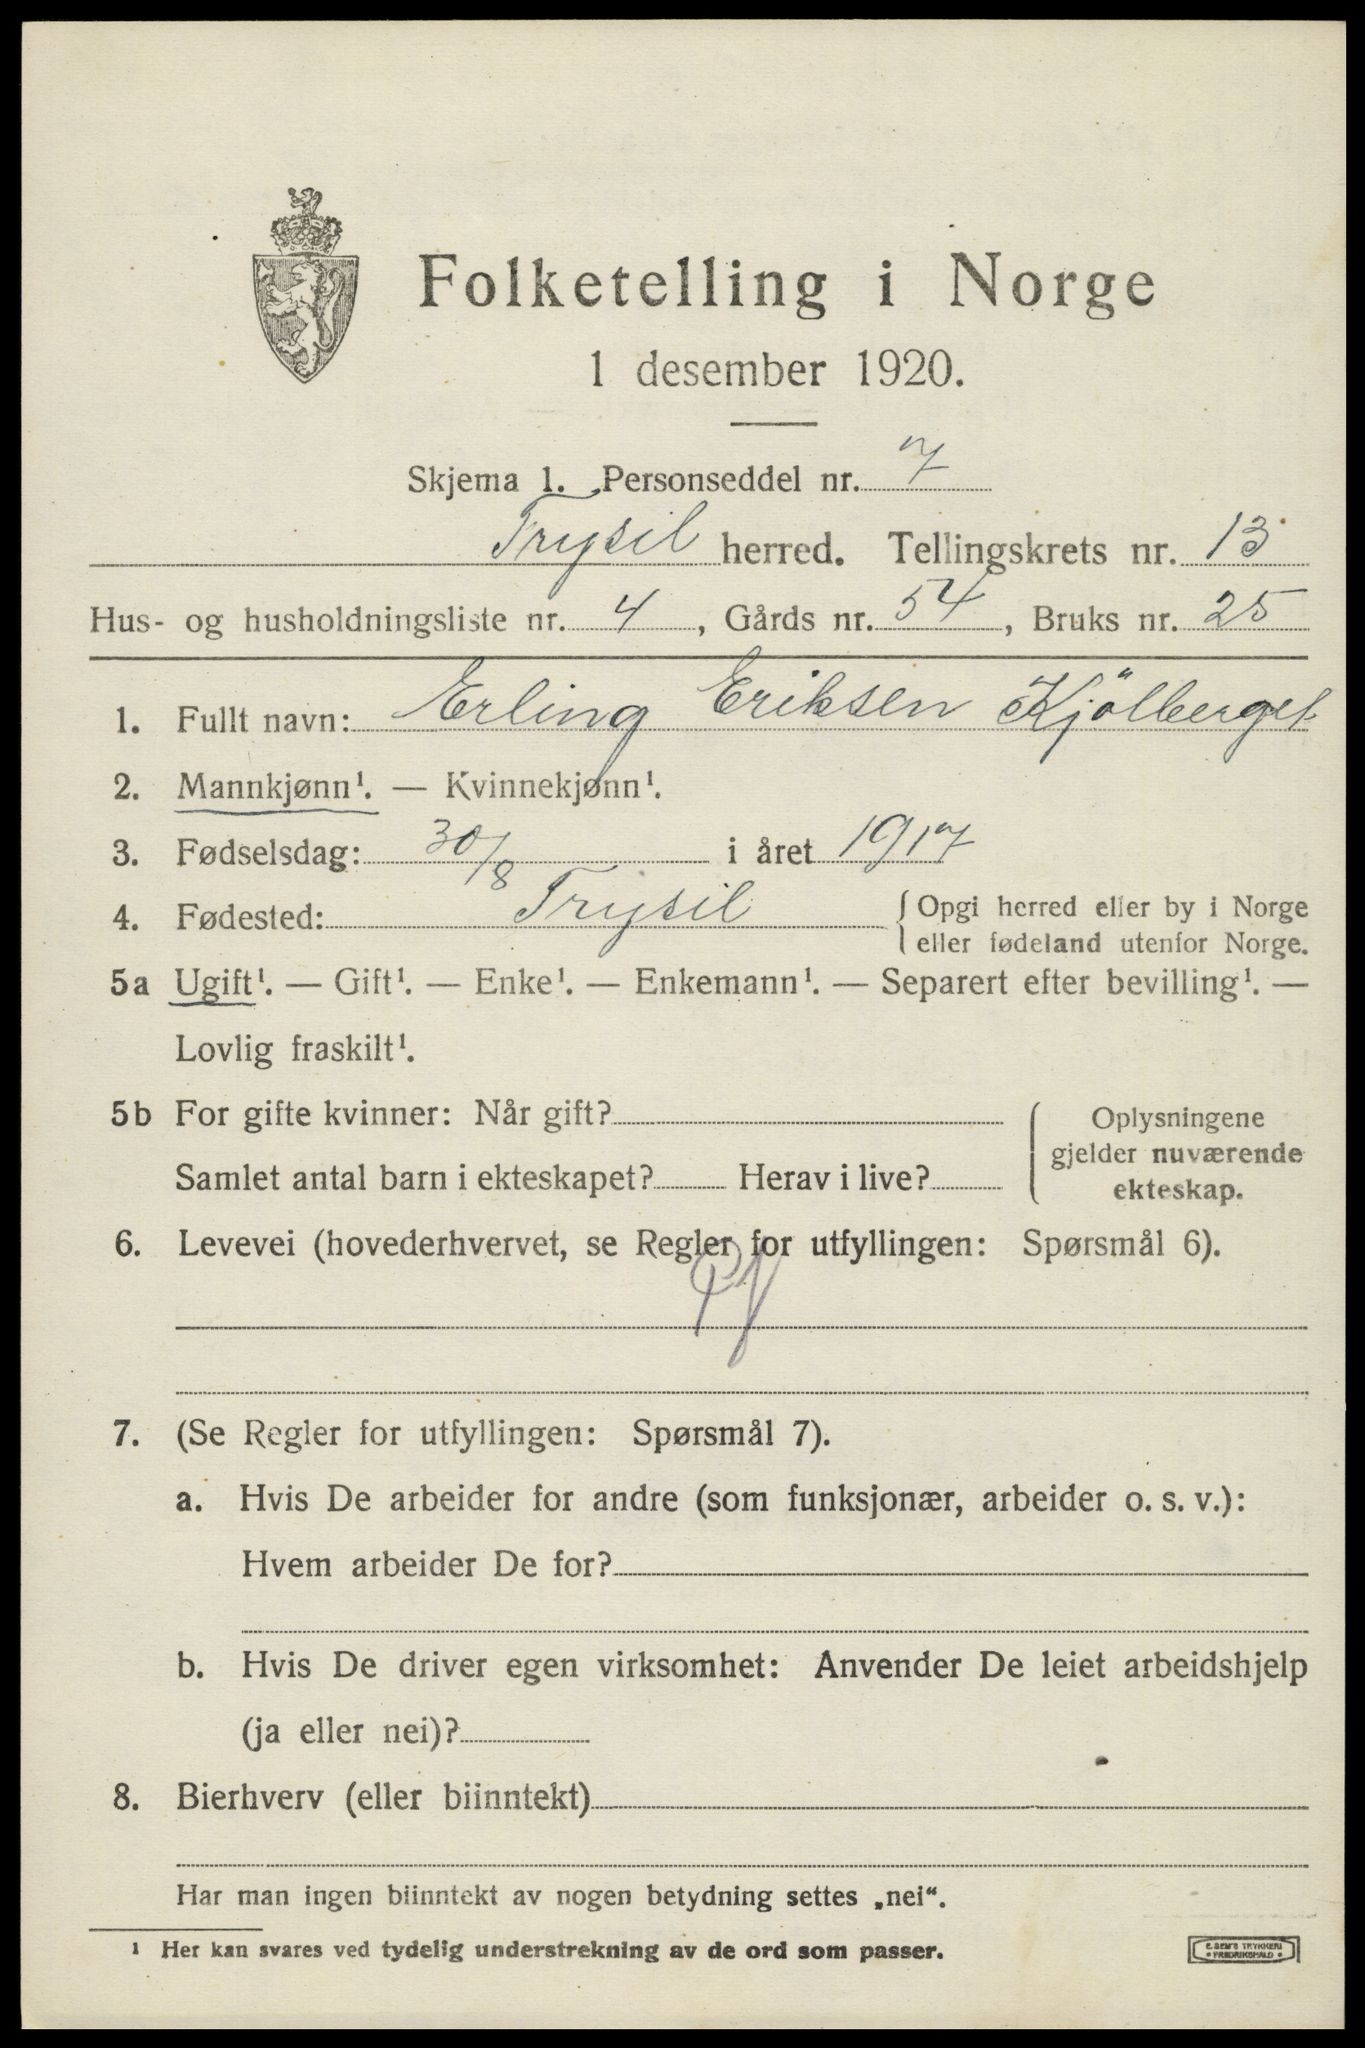 Folketelling i Norge
1 desember 1920.
Skjema 1. Personseddel nr. 7
Trysil herred. Tellingskrets nr. 13
Hus- og husholdningsliste nr. 4, Gårds nr. 54, Bruks nr. 25
1. Fullt navn: Erling Eriksen Kjölberget
2. Mannkjønn¹. — Kvinnekjønn¹.
3. Fødselsdag: 30/8 i året 1917
4. Fødested: Trysil { Opgi herred eller by i Norge
eller fødeland utenfor Norge.
5a Ugift¹. — Gift¹. — Enke¹. — Enkemann¹. — Separert efter bevilling¹. —
Lovlig fraskilt¹.
5b For gifte kvinner: Når gift?
Samlet antal barn i ekteskapet? Herav i live?
{ Oplysningene
gjelder nuværende
ekteskap.
6. Levevei (hovederhvervet, se Regler for utfyllingen: Spørsmål 6).
7. (Se Regler for utfyllingen: Spørsmål 7).
a. Hvis De arbeider for andre (som funksjonær, arbeider o. s. v.):
Hvem arbeider De for?
b. Hvis De driver egen virksomhet: Anvender De leiet arbeidshjelp
(ja eller nei)?
8. Bierhverv (eller biinntekt)
Har man ingen biinntekt av nogen betydning settes „nei“.
¹ Her kan svares ved tydelig understrekning av de ord som passer.
E. SEM'S TRYKKERI
FREDRIKSHALD